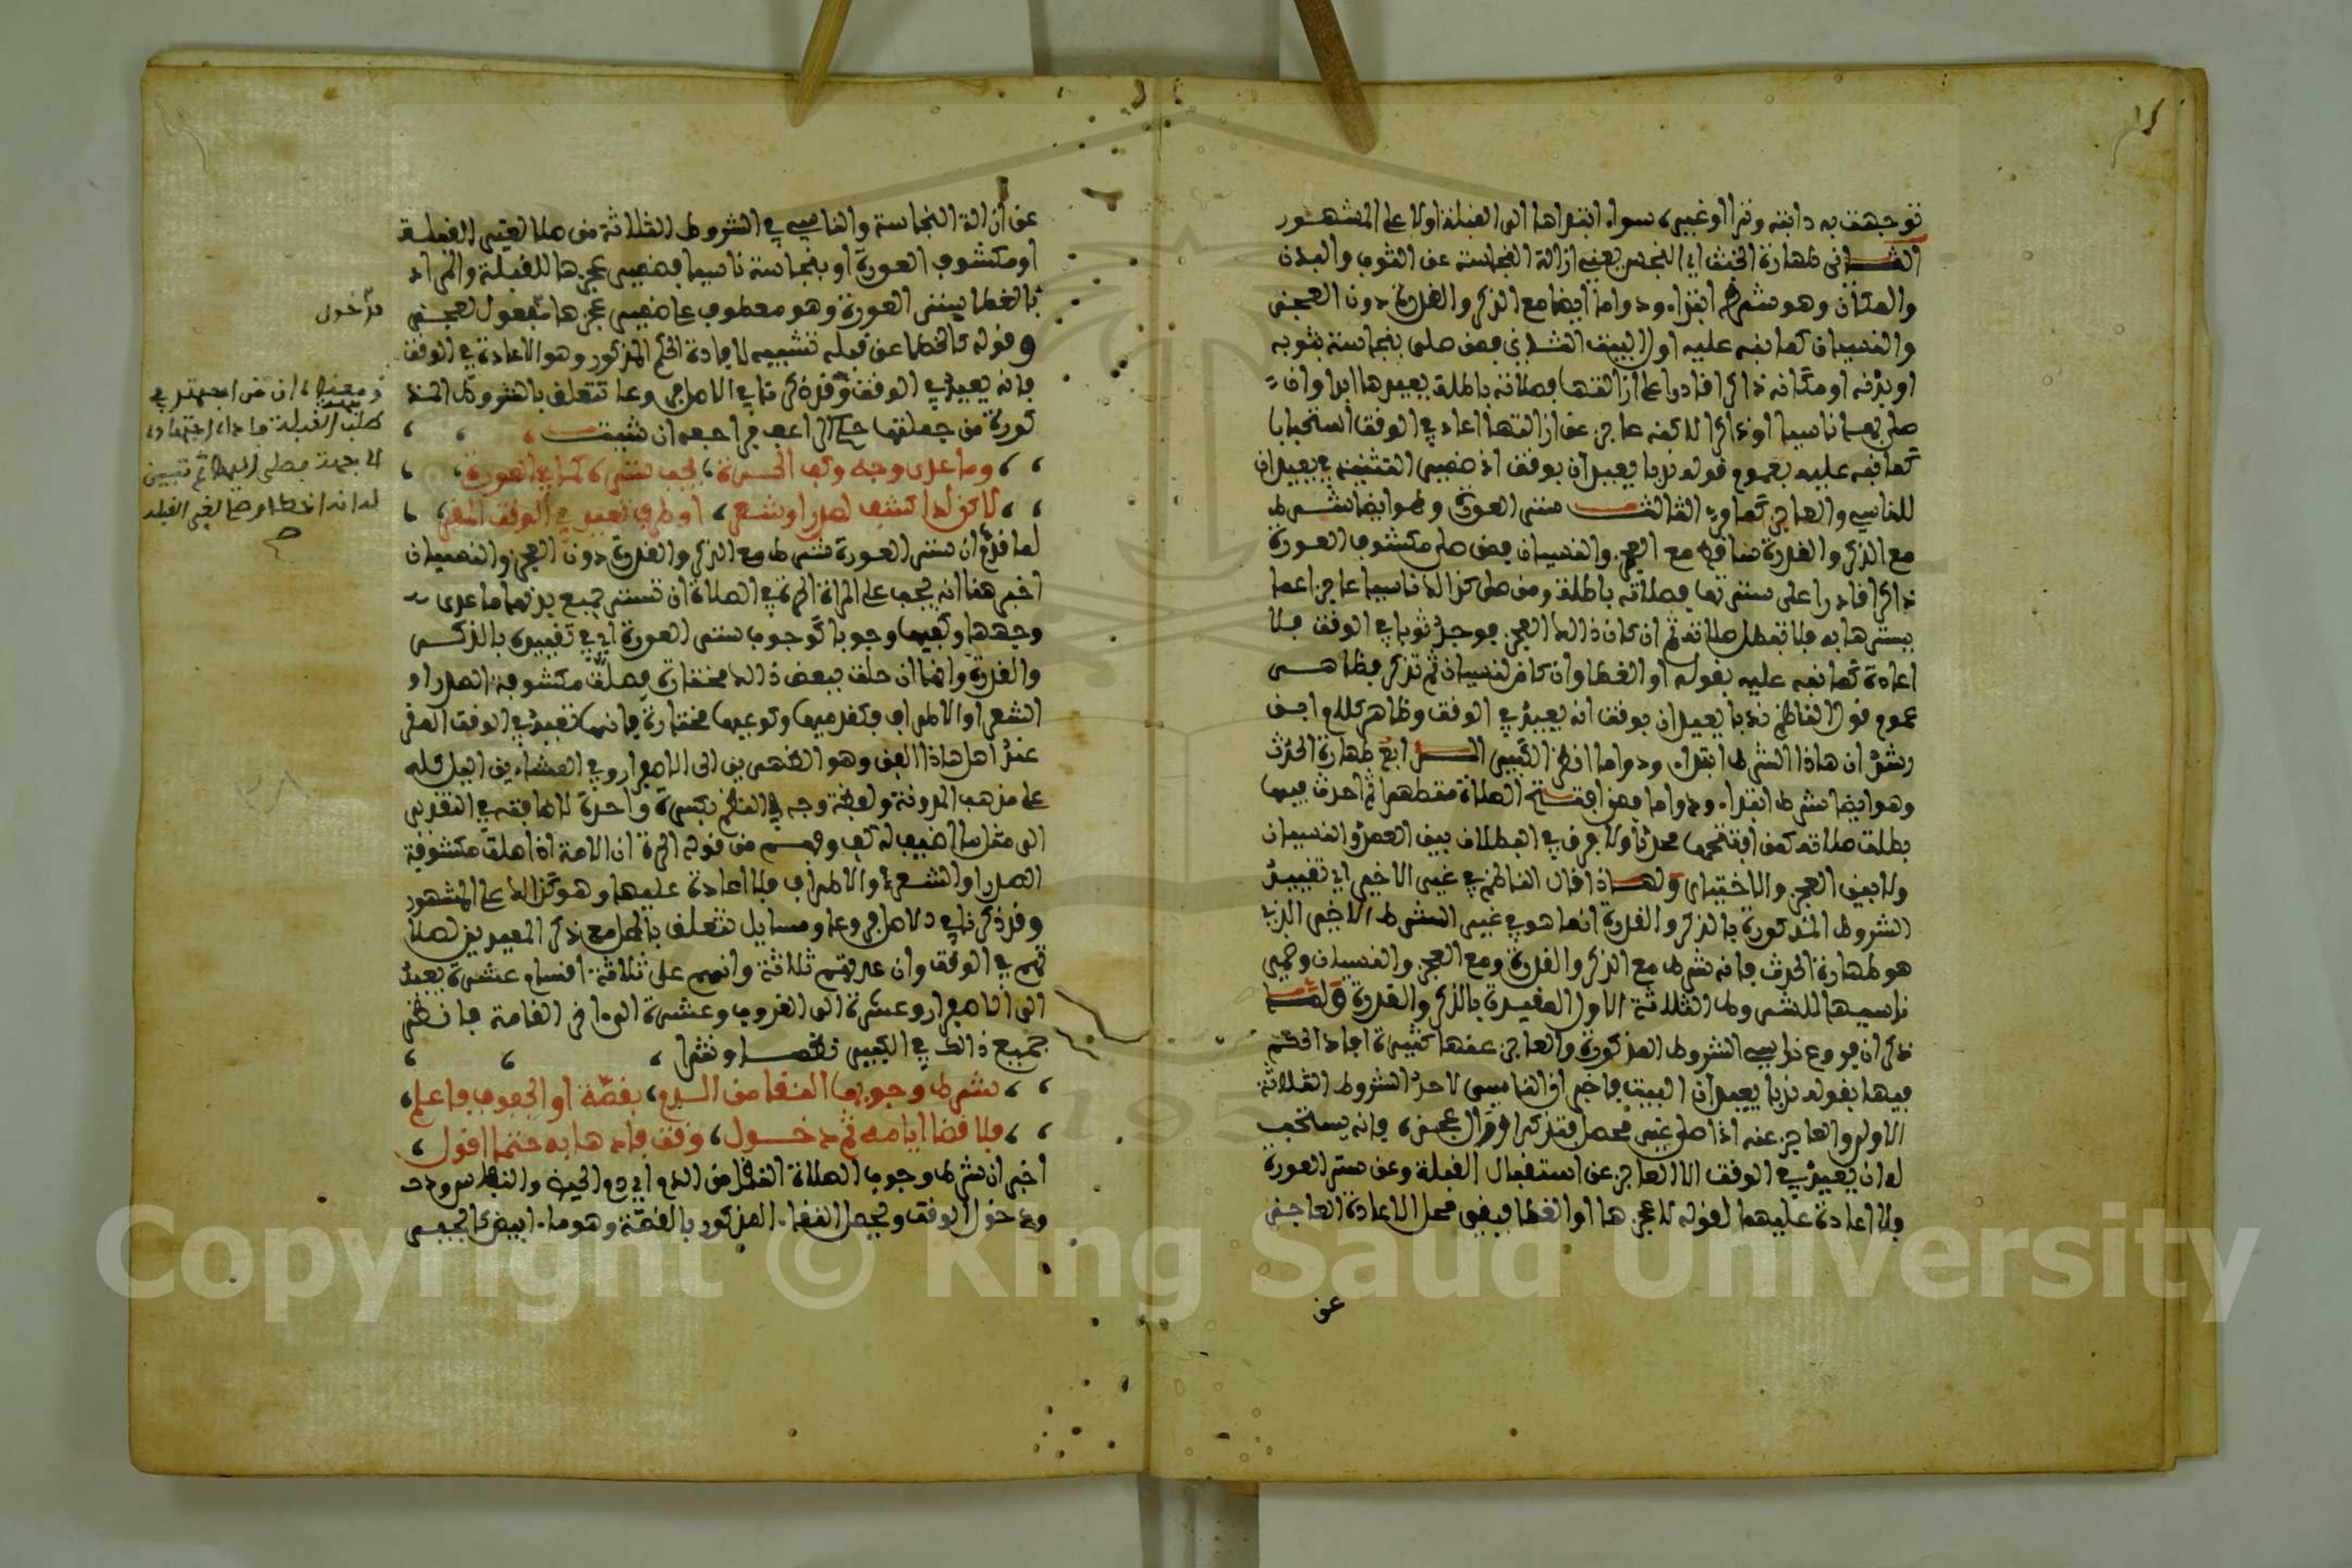 توجهت به دابته وترا او غيره سواء ابتدأها الى القبلة اولا على المشهور
الثاني طهارة الخبث اي النجس يعني ازالة النجاسة عن الثوب والبدن
والمكان وهو شرط ابتداء ودواما ايضا مع الذكر والقدرة دون العجز
والنسيان كما نبه عليه اول البيت الثاني فمن صلى بنجاسة بثوبه
او بدنه او مكانه ذاكرا قادرا على ازالتها فصلاته باطلة يعيدها ابدا وان
صلى بها ناسيا او ذاكرا لاكنه عاجز عن ازالتها اعاد في الوقت استحبابا
كما نبه عليه بعموم قوله ندبا يعيدان بوقت اذ ضمير التثنية في يعيدان
للناسي والعاجز كما مر الثالث ستر العورة وهو ايضا شرط
مع الذكر والقدرة ساقط مع العجز والنسيان فمن صلى مكشوف العورة
ذاكرا قادرا على سترتها فصلاته باطلة ومن صلى كذالك ناسيا عاجزا عما
يسترها به فلا تبطل صلاته ثم ان كان ذالك العجز فوجد ثوبا في الوقت فلا
اعادة كما نبه عليه بقوله او الغطا وان كان لنسيان ثم تذكر فظاهر
عموم قول الناظم ندبا يعيدان بوقت انه يعيد في الوقت وظاهر كلام ابن
رشد ان هاذا الشرط ابتداء ودواما انظر الكبير الرابع طهارة الحدث
وهو ايضا شرط ابتداء ودواما فمن افتتح الصلاة متطهرا ثم احدث فيها
بطلت صلاته كمن افتتحها محدثا ولا فرق في البطلان بين العمد والنسيان
ولا بين العجز والاختيار ولهاذا قال الناظم في غير الاخير اي تقييد
الشروط المذكورة بالذكر والقدرة انما هو في غير الشرط الاخير الذي
هو طهارة الحدث فانه شرط مع الذكر والقدرة ومع العجز والنسيان وضمير
ناسيها للشروط الثلاثة الاول المقيدة بالذكر والقدرة ولما
ذكر ان فروع ناسي الشروط المذكورة والعاجز عنها كثيرة افاد الحكم
فيها بقوله ندبا يعيدان البيت فاخبر ان الناسي لاحد الشروط الثلاثة
الاول والعاجز عنه اذا صلى غير محصل فتذكر او زال عجزه فانه يستحب
له ان يعيد في الوقت الا العاجز عن استقبال القبلة وعن ستر العورة
فلا اعادة عليهما لقوله لا عجزها او الغطا فيبقى محل الاعادة العاجز
عن
عن ازالة النجاسة والناسي في الشروط الثلاثة من صلا لغير القبلة
او مكشوف العورة او بنجاسة ناسيا فضمير عجزها للقبلة والمراد
بالغطا ستر العورة وهو معطوف على ضمير عجزها مفعول لعجز
وقوله كالخطا عن قبله تشبيه لافادة الحكم المذكور وهو الاعادة في الوقت
فانه يعيد في الوقت وقد ذكرنا في الاصل فروعا تتعلق بالشروط المذ
كورة من جملتها حكم الراعف فراجعه ان شئت
وما عدى وجه وكف الحرة، يجب ستره كما في العورة
لاكن لدا كشف لصدر او شعر، او طرف تعيد في الوقت المقر
لما قدم ان ستر العورة شرط مع الذكر والقدرة دون العجز والنسيان
اخبر هنا انه يجب على المراة الحرة في الصلاة ان تستر جميع بدنها ما عدى
وجهها وكفيها وجوبا كوجوب ستر العورة اي في تقييده بالذكر
والقدرة وانها ان صلت ببعض ذالك مختارة فصلت مكشوفة الصدر او
الشعر او الاطراف كقدميها وكوعيها مختارة فانها تعيد في الوقت المقر
عند اهل هاذا الفن وهو الظهرين الى الاصفرار وفي العشاءين اليل كله
على مذهب المدونة ولفظة وجه في النظم بكسرة واحدة لاضافته في التقدير
الى مثل ما اضيف له كف وفهم من قوله الحرة ان الامة اذا صلت مكشوفة
الصدر او الشعر او الاطراف فلا اعادة عليها وهو كذالك على المشهور
وقد ذكرنا في الاصل فروعا ومسايل تتعلق بالمحل مع ذكر المعيدين لصلا
تهم في الوقت وان عدتهم ثلاثة وانهم على ثلاثة اقسام عشرة تعيد
الى الاصفرار وعشرة الى الغروب وعشرة الى اخر القامة فانظر
جميع ذالك في الكبير نظما ونثرا
شرط وجوبها النقا من الدم، بقصة او الجفوف فاعلم،
فلا قضا ايامه ثم دخول، وقت فادها به حتما اقول،
اخبر ان شرط وجوب الصلاة النقاء من الدم اي دم الحيض والنفاس ودخـ
ودخول الوقت ويحصل النقاء المذكور بالقصة وهو ماء ابيض كالجير
ومعناه ان من اجتهد في
طلب القبلة فاداه اجتهاده
الا جهة فصلى اليها ثم تبين
له انه اخطا وصلا لغير القبلة
صح